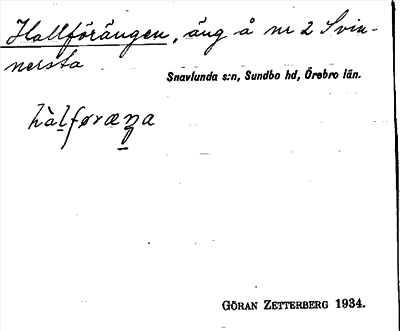 Hallförängen, äng å nr 2 Svin-
nersta
Snavlunda s:n, Sundbo hd, Örebro län.
hàl̠føræŋ̠a
GÖRAN ZETTERBERG 1934.